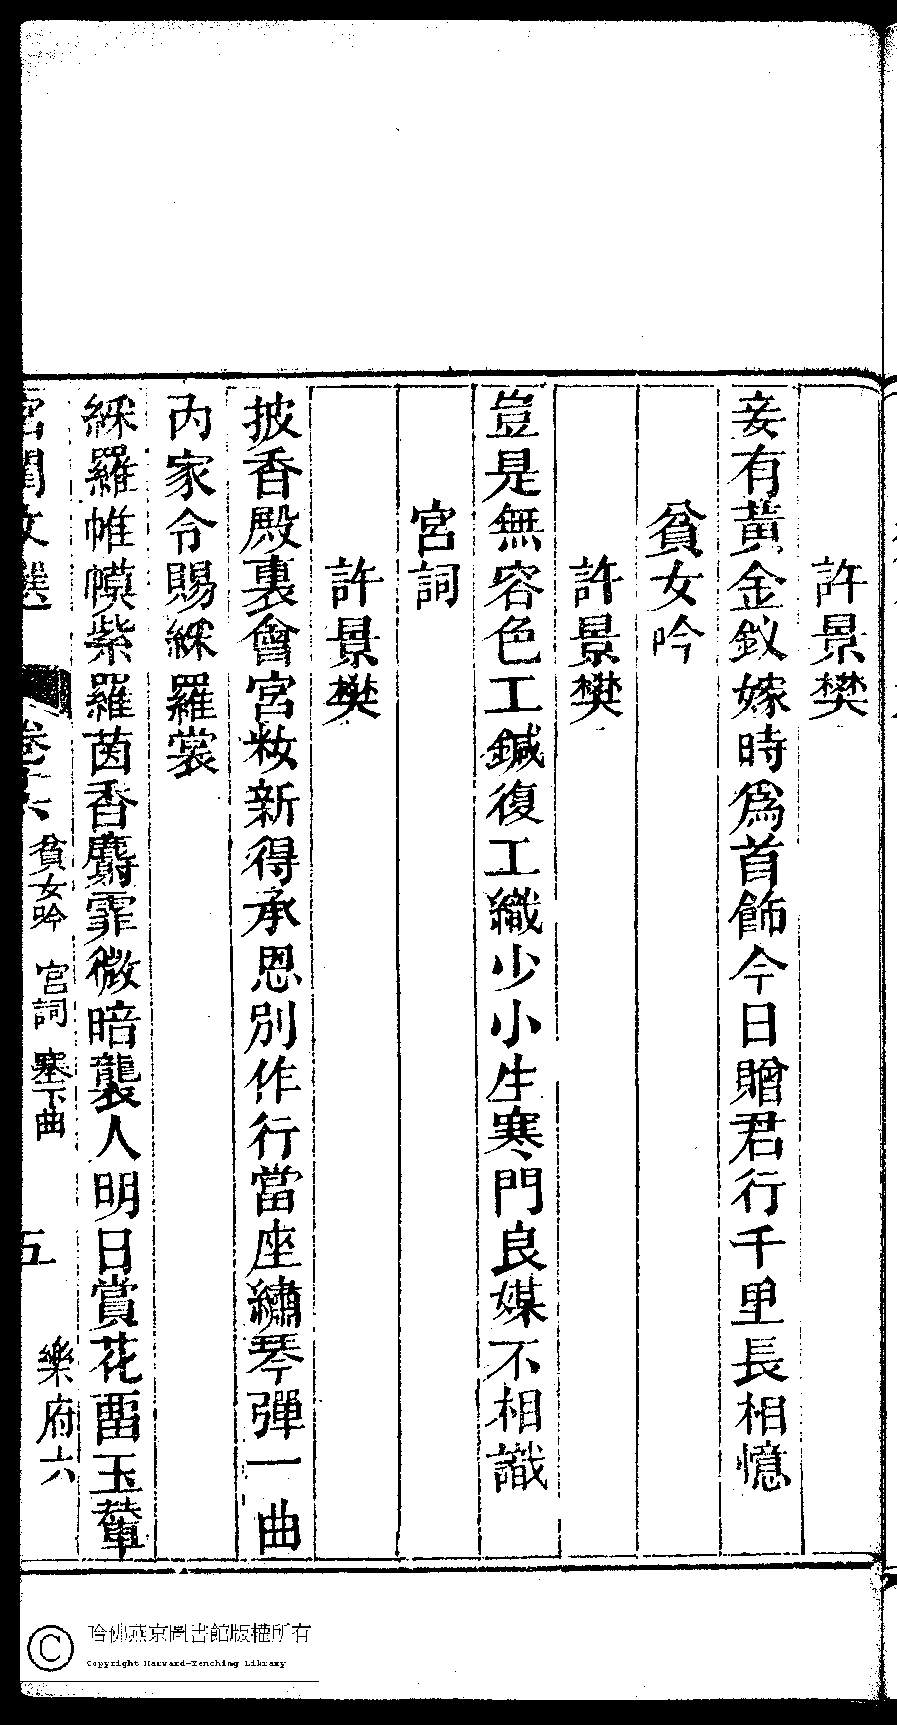 許景樊
妾有黃金釵嫁時爲首飾今日贈君行千里長相憶
貧女吟
許景樊
豈是無容色工鍼復工織少小生寒門良媒不相識
宮詞
許景樊
披香殿裏會宮妝新得承恩別作行當座繡琴彈一曲
內家令賜綵羅裳
綵羅帷幙紫羅茵香麝霏微暗襲人明日賞花畱玉輦
宮閨文選
卷六
貧女吟 宮詞 塞下曲
五
樂府六
哈佛燕京圖書館版權所有
Copyright Harvard-Yenching Library